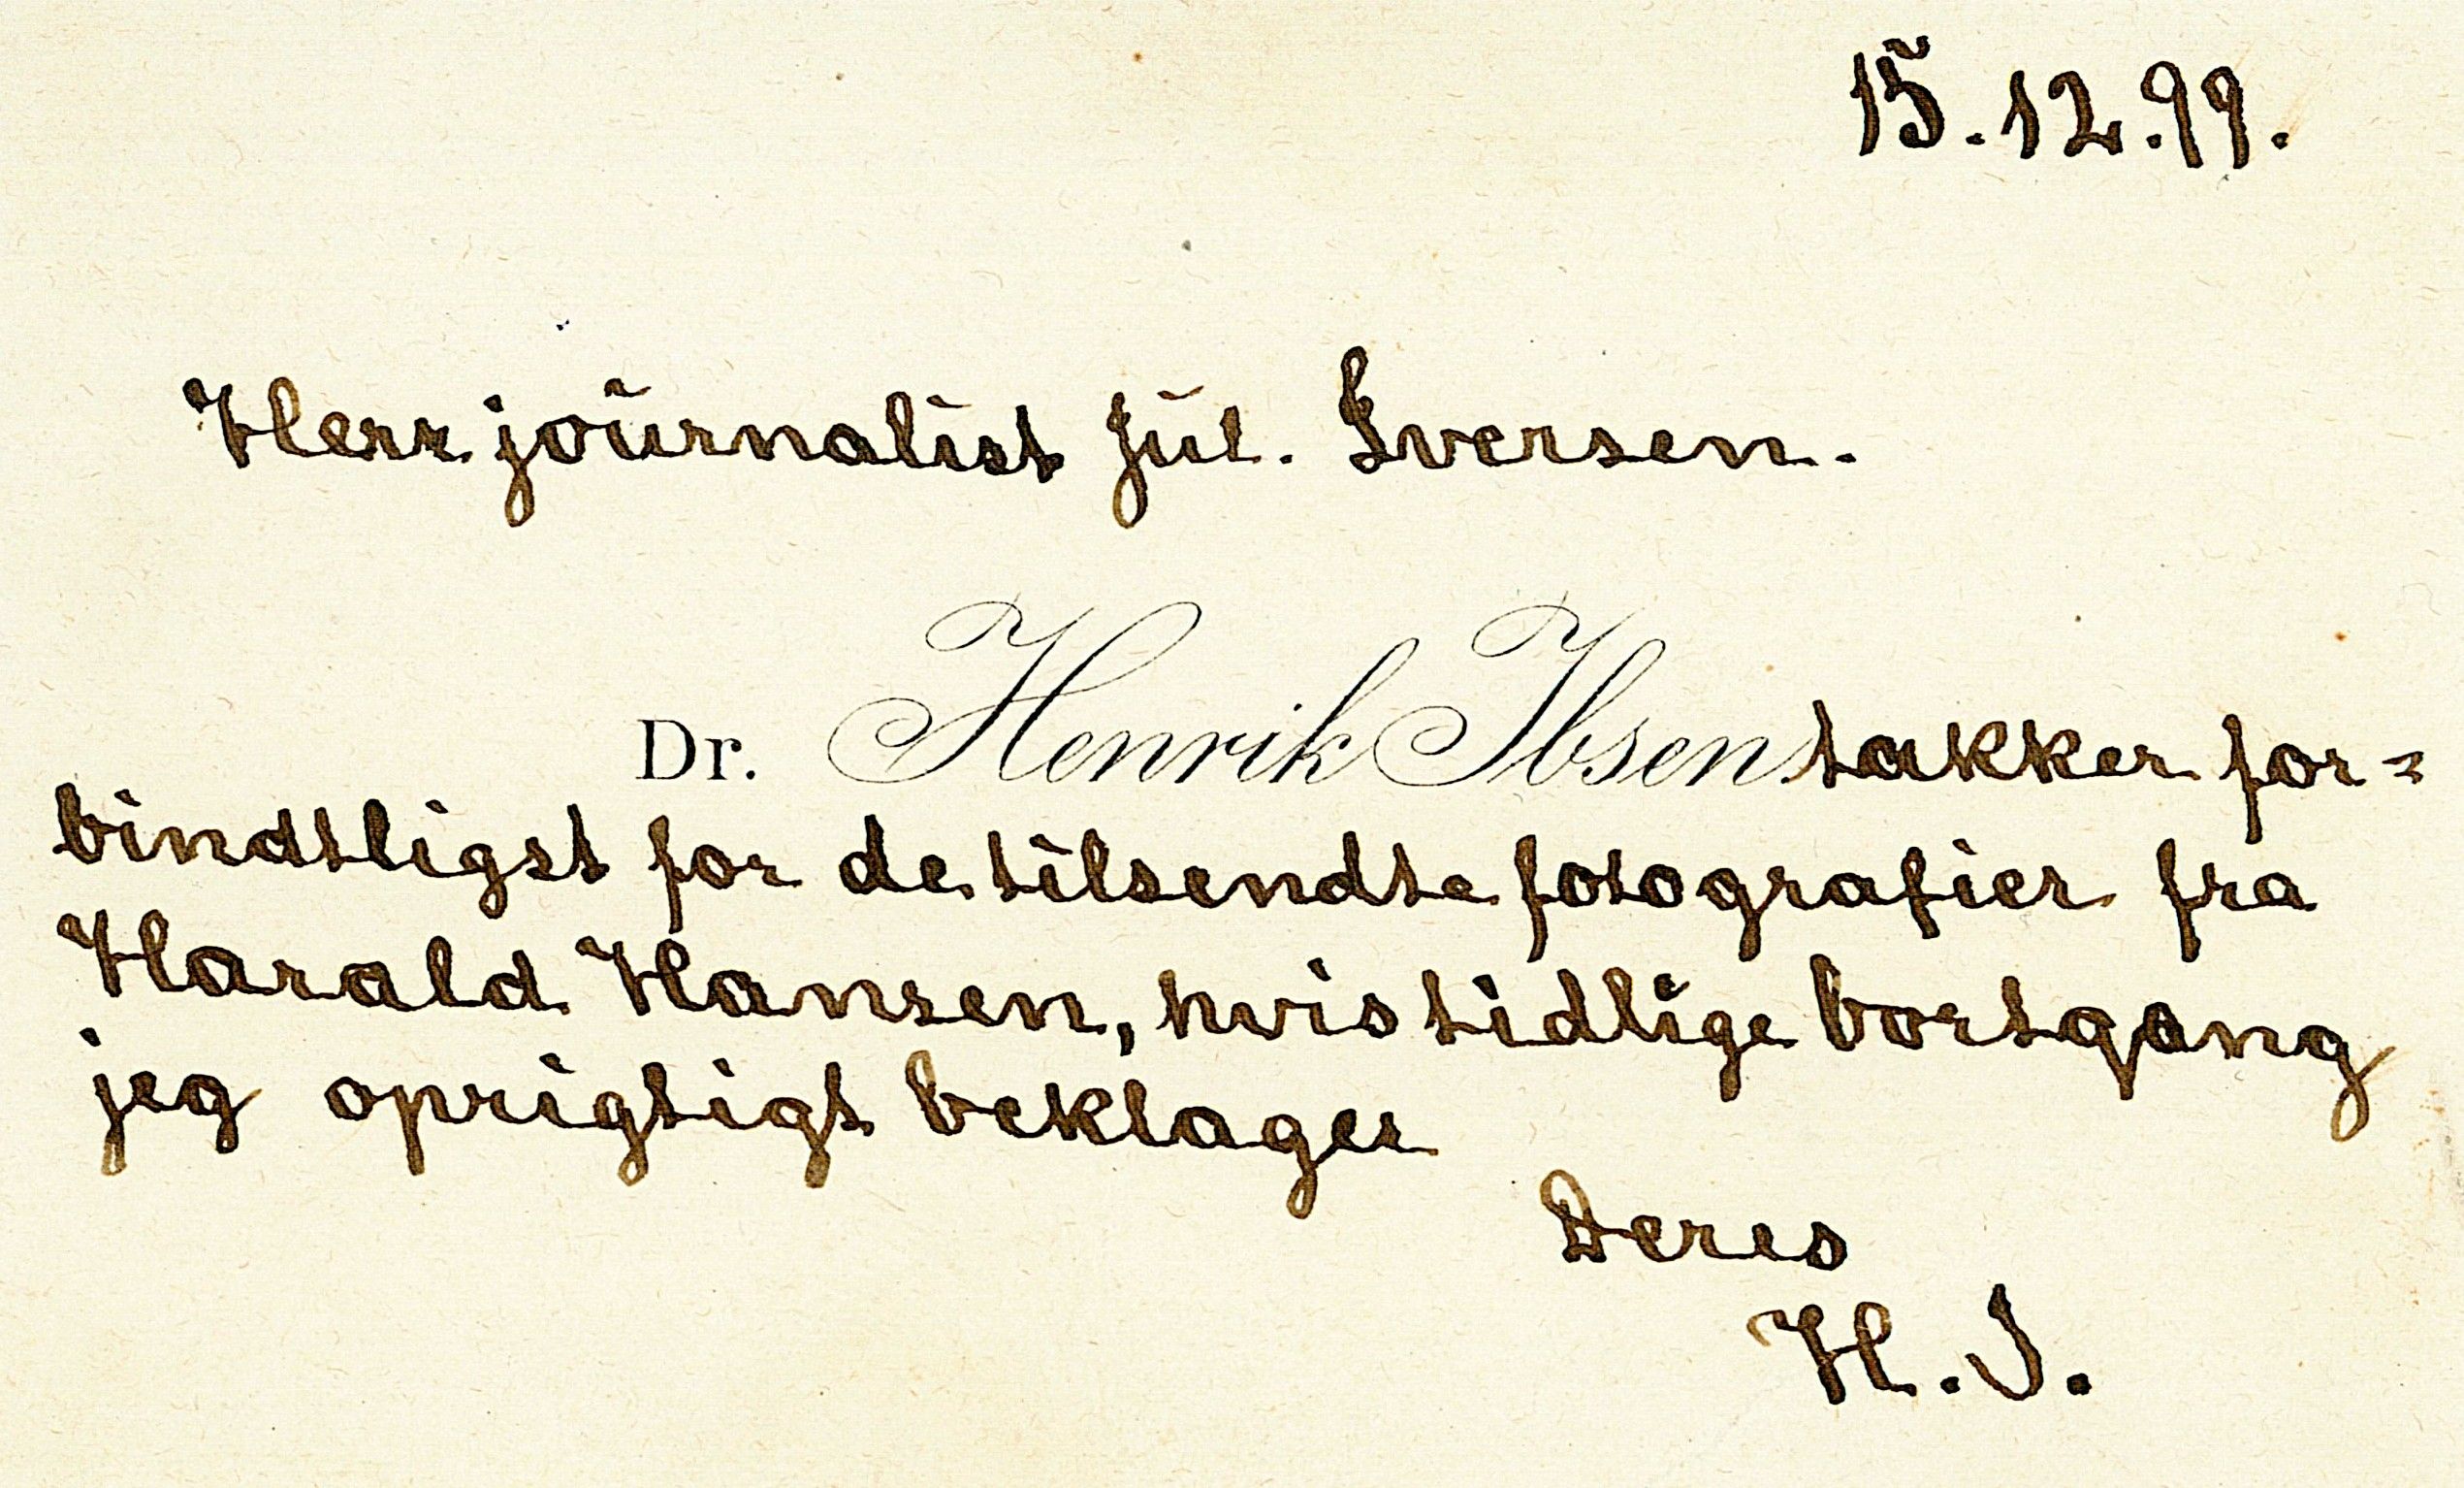 15.12.99.
Herr journalist Jul. Iversen.
Dr. Henrik Ibsen takker for=
bindtligst for de tilsendte fotografier fra
Harald Hansen, hvis tidlige bortgang
jeg oprigtigt beklager
Deres
H. I.